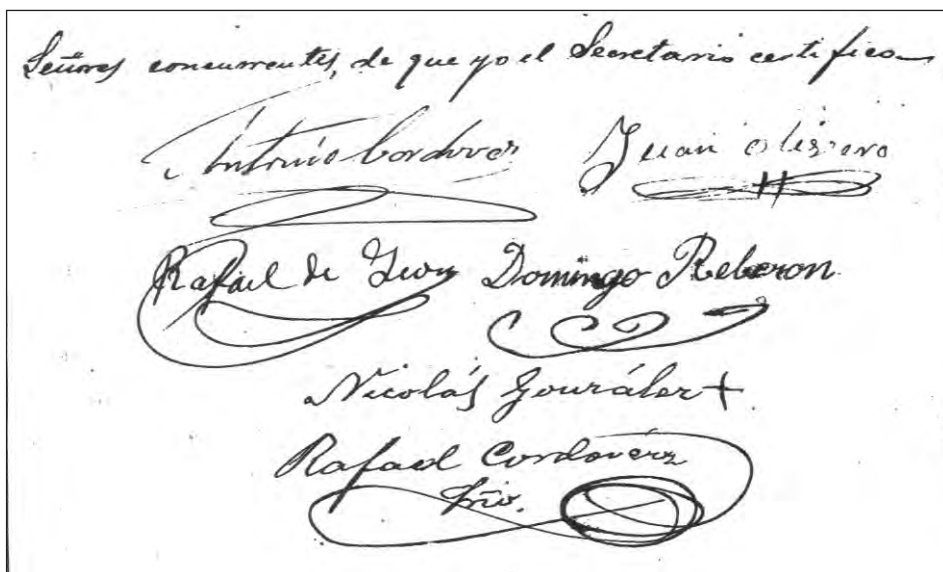 Señores concurrentes, de que yo el Secretario certifico
Antonio Cordovez Juan
Rafael de Leon Domingo Reberon
Nicolás González +
Rafael Cordovéz
Srio.